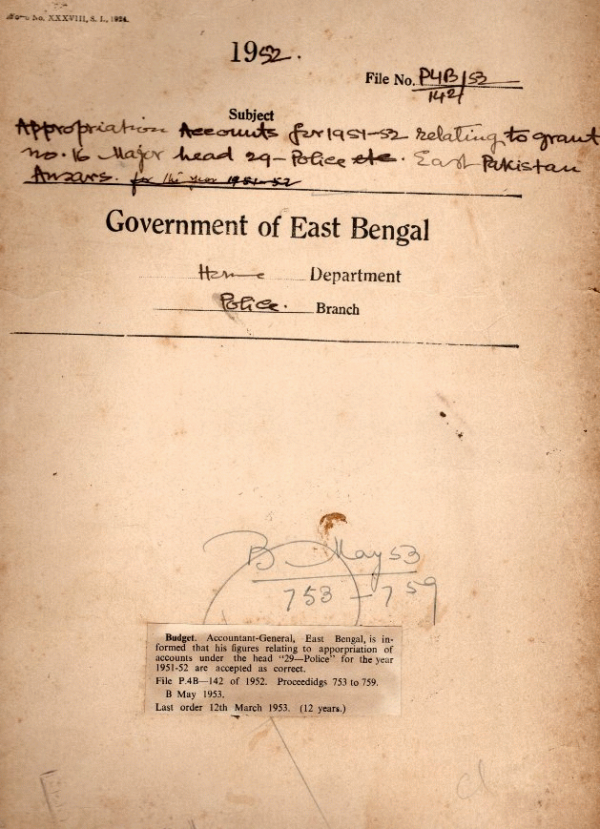 No. XXXVIII, S. I., 1924.
1952.
File No. P4B/53
142
Subject
Appropriation Accounts for 1951-52 relating to grant
no. 16 Major head 29-Police etc. East Pakistan
Ansars. for the year 1951-52
Government of East Bengal
Home Department
Police. Branch
B May 53
753-759
Budget. Accountant-General, East Bengal, is in-
formed that his figures relating to apporpriation of
accounts under the head "29—Police" for the year
1951-52 are accepted as correct.
File P.4B—142 of 1952. Proceedidgs 753 to 759.
B May 1953.
Last order 12th March 1953. (12 years.)